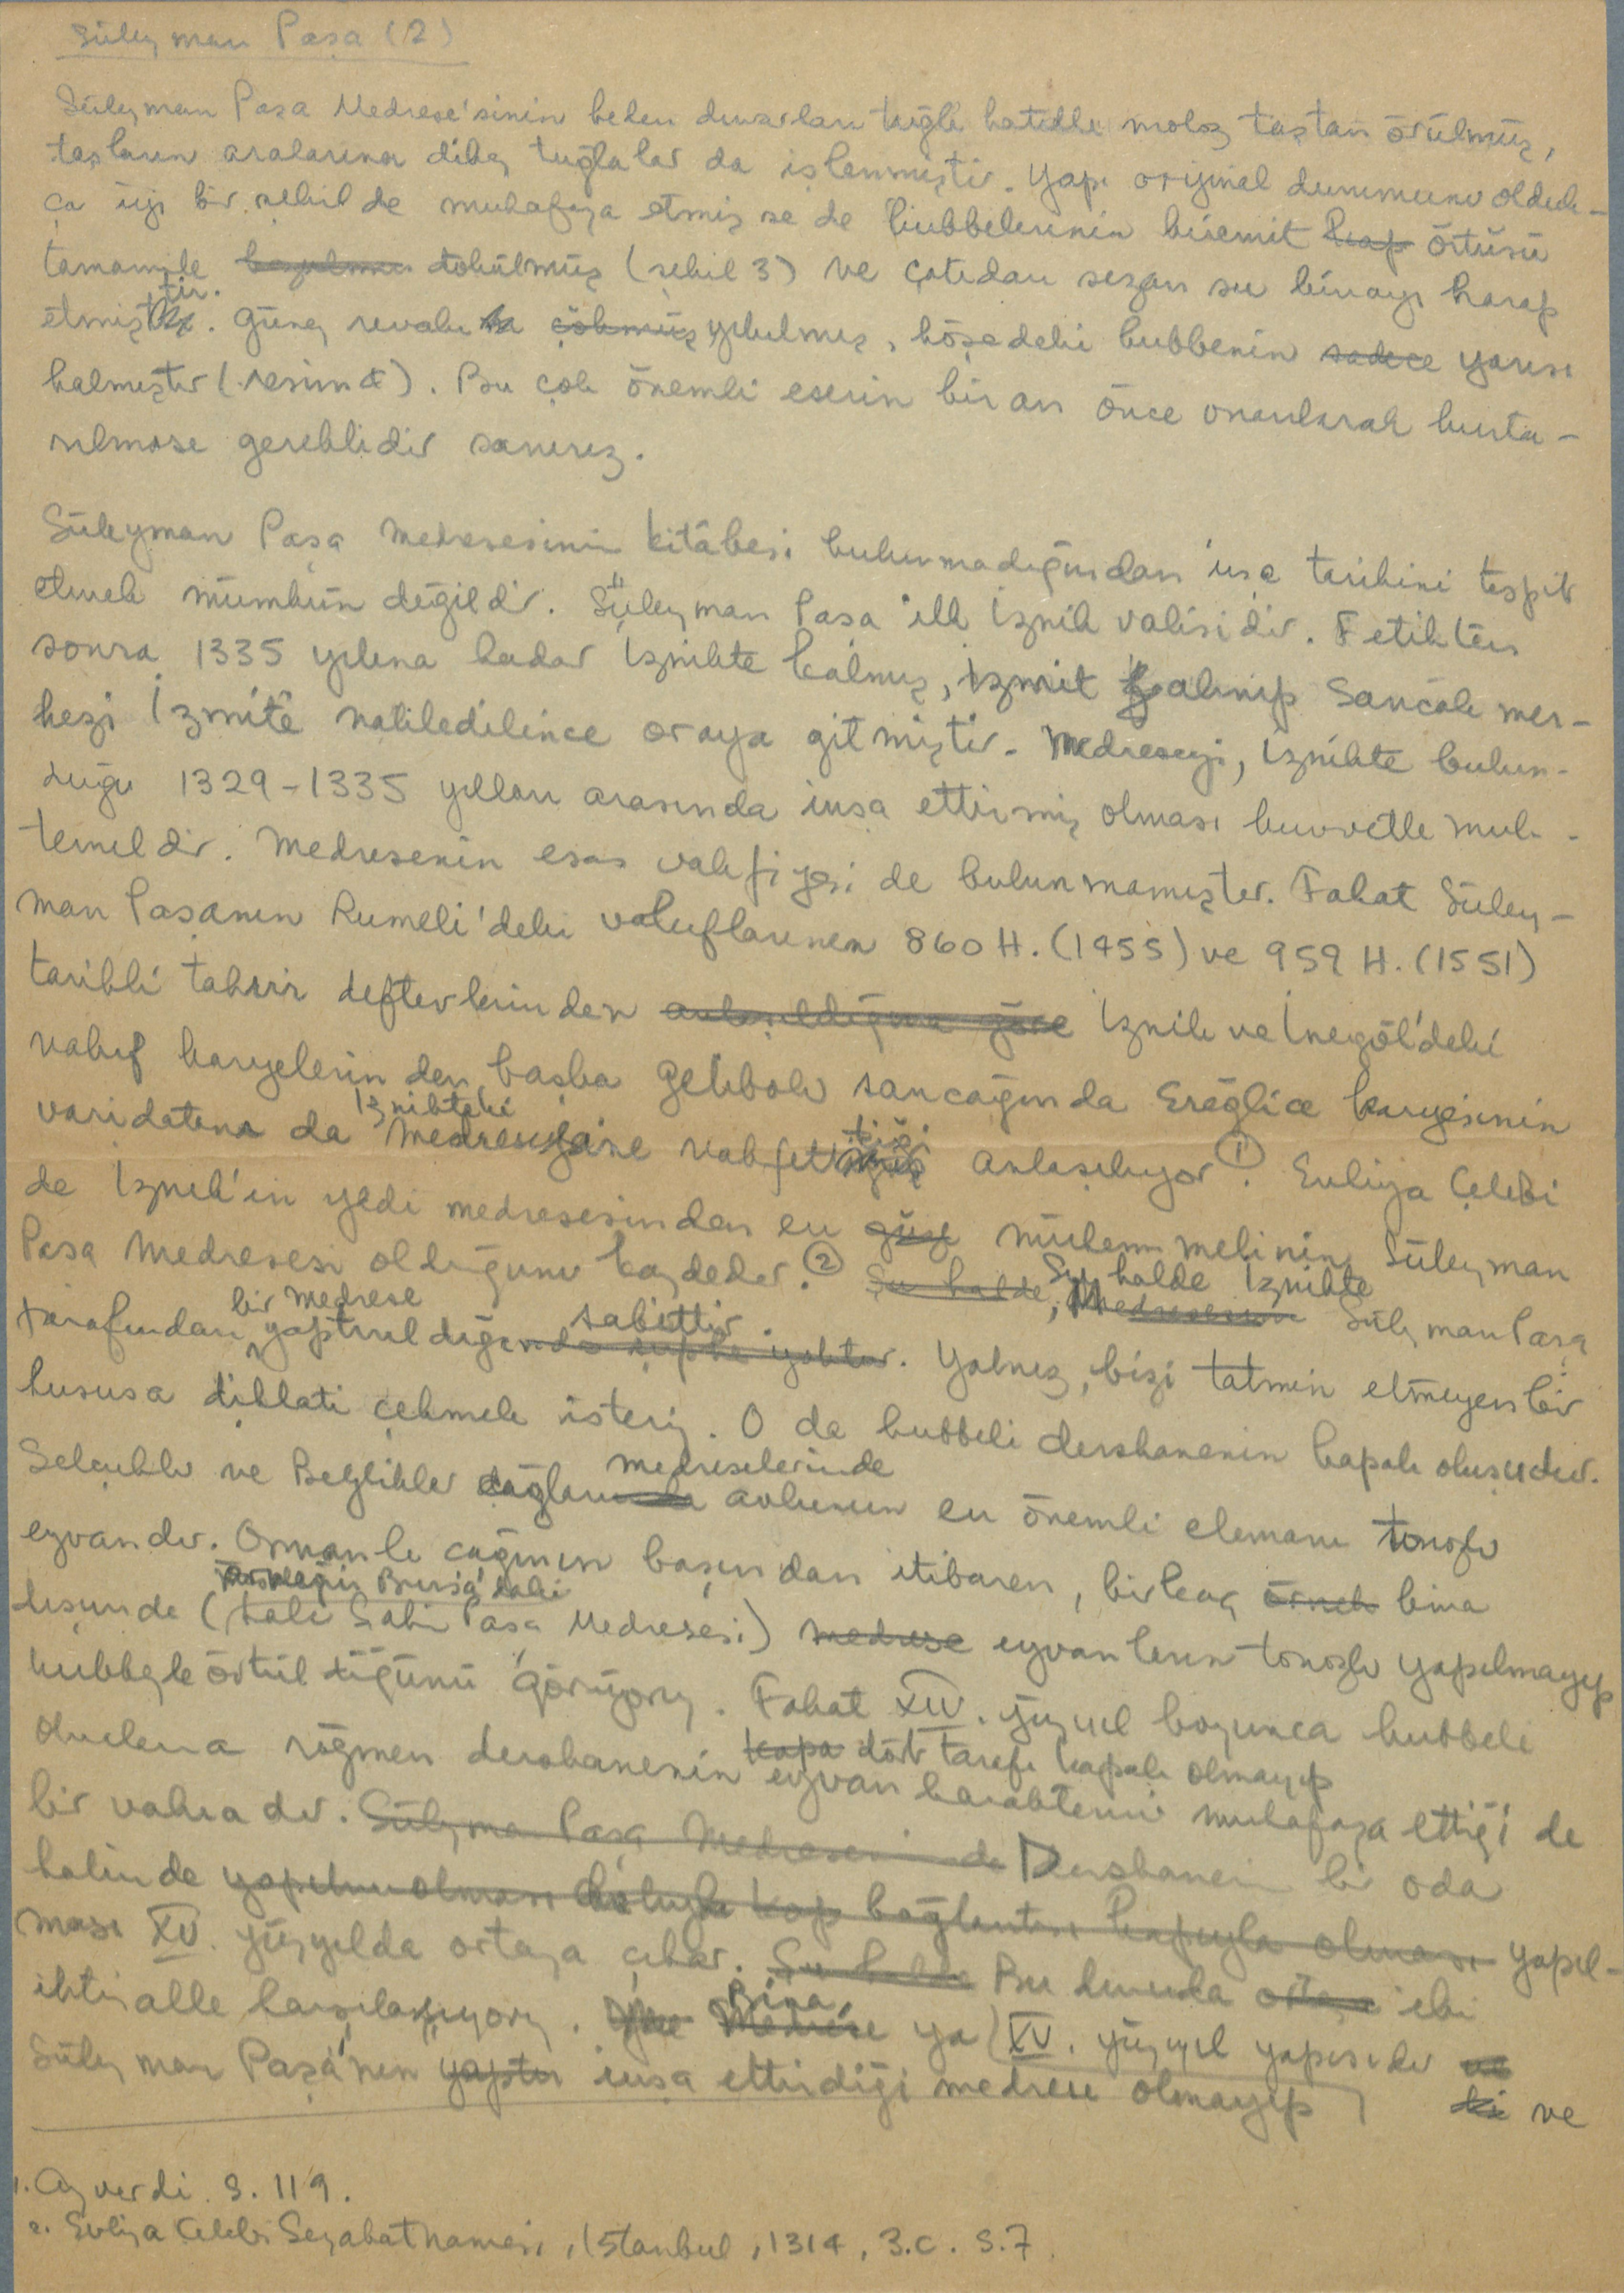 Süleyman Paşa (2)
Süleyman Paşa Medrese'sinin beden duvarları tuğla hatıllı moloz taştan örülmüş,
taşların aralarına dikey tuğlalar da işlenmiştir. Yapı orijinal durumunu olduk-
ça iyi bir şekilde muhafaza etmişse de kubbelerinin kiremit kap örtüsü
tamamile dökülmüş (şekil 3) ve çatıdan sızan su binayı harap
etmiştir. Güney revakı çökmüş yıkılmış, köşedeki kubbenin sadece yarısı
kalmıştır (resim 4). Bu çok önemli eserin bir an önce onarılarak kurta-
rılması gereklidir sanırız.
Süleyman Paşa Medresesinin kitâbesi bulunmadığından inşa tarihini tespit
etmek mümkün değildir. Süleyman Paşa ilk İznik valisidir. Fetihten
sonra 1335 yılına kadar İznikte kalmış, İzmit alınıp Sancak mer-
kezi İzmite nakledilince oraya gitmiştir. Medreseyi, İznikte bulun-
duğu 1329-1335 yılları arasında inşa ettirmiş olması kuvvetle muh-
temeldir. Medresenin esas vakfiyesi de bulunmamıştır. Fakat Süley-
man Paşanın Rumeli'deki vakıflarının 860 H. (1455) ve 959 H. (1551)
tarihli tahrir defterlerinden anlaşıldığına göre İznik ve İnegöl'deki
vakıf karyelerinden başka Gelibolu sancağında Ereğlice karyesinin
varidatını da İznikteki medresesine vakfettiği anlaşılıyor ①. Evliya Çelebi
de İznik'in yedi medresesinden en mükemmelinin Süleyman
Paşa Medresesi olduğunu kaydeder. ② Şu halde, Şu halde İznikte Medresesinin Süleyman Paşa
tarafından bir medrese yaptırıldığı sabittir. nda şüphe yoktur. Yalnız, bizi tatmin etmeyen bir
hususa dikkati çekmek isteriz. O da kubbeli dershanenin kapalı oluşudur.
Selçuklu ve Beylikler çağları medreselerinde avlunun en önemli elemanı tonozlu
eyvandır. Osmanlı çağının başından itibaren, birkaç örnek bina
dışında (örneğin Bursa'daki Lala Şahin Paşa Medresesi) medrese eyvanların tonozlu yapılmayıp
kubbeyle örtüldüğünü görüyoruz. Fakat XIV. yüzyıl boyunca kubbeli
olmalarına rağmen dershanenin kapa dört tarafı kapalı olmayıp eyvan karakterini muhafaza ettiği de
bir vakıadır. Süleyman Paşa Medresesinde Dershanenin bir oda
halinde yapılmış olması bağlantısı kapıyla olması yapıl-
ması XV. yüzyılda ortaya çıkar. Şu halde Bu durumda ortaya iki
ihtimalle karşılaşıyoruz. Bina Medrese ya XV. yüzyıl yapısıdır ve
Süleyman Paşa'nın yaptır inşa ettirdiği medrese olmayıp ki ve
1. Ayverdi. S. 119.
2. Evliya Çelebi Seyahatnamesi, İstanbul, 1314, 3.c. S.7.